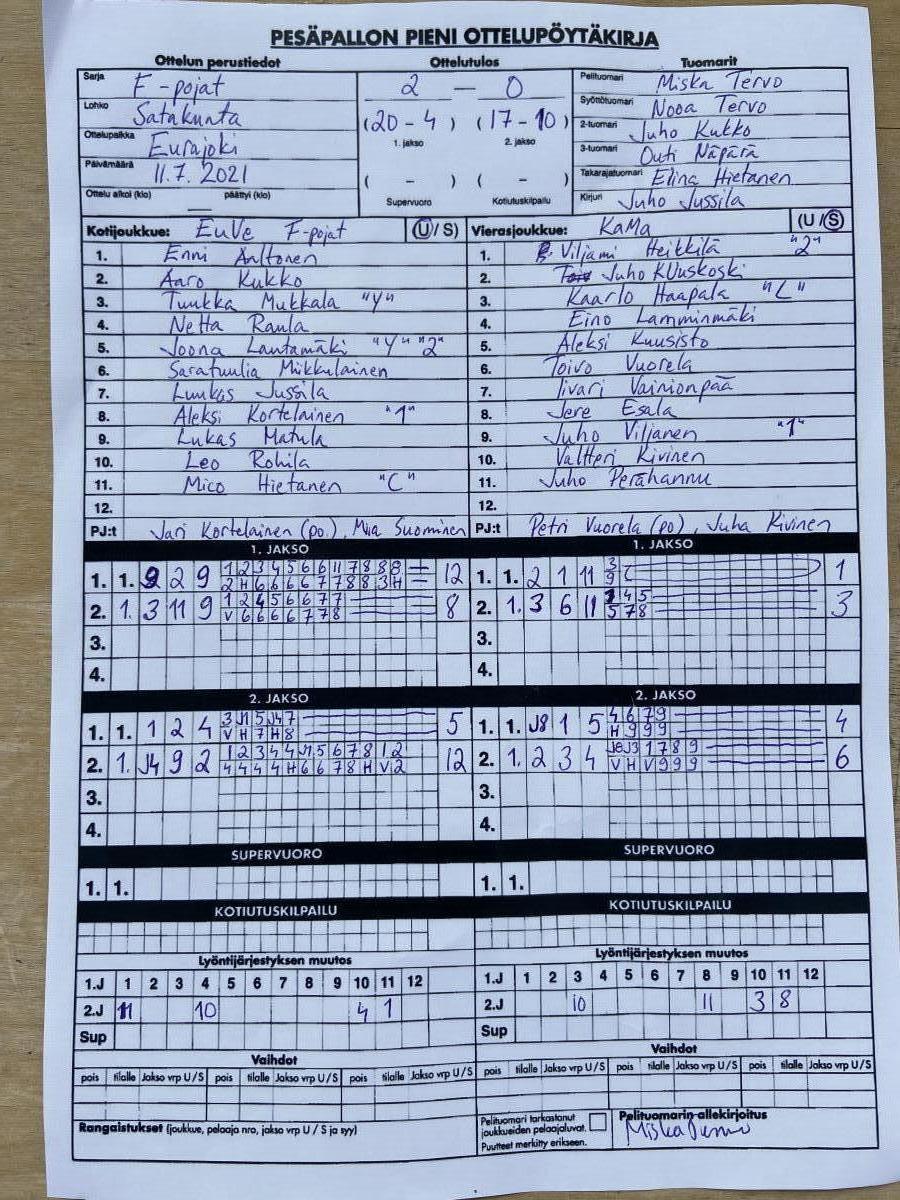 PESÄPALLON PIENI OTTELUPÖYTÄKIRJA
Ottelun perustiedot
Sarja F-pojat
Lohko Satakunta
Ottelupaikka Eurajoki
Päivämäärä 11.7. 2021
Ottelu alkoi (klo) päättyi (klo)
Ottelutulos
2 — 0
(20 - 4) (17 - 10)
1. jakso 2. jakso
( - ) ( - )
Supervuoro Kotiutuskilpailu
Tuomarit
Pelituomari Miska Tervo
Syöttötuomari Nooa Tervo
2-tuomari Juho Kukko
3-tuomari Outi Näpärä
Takarajatuomari Elina Hietanen
Kirjuri Juho Jussila
Kotijoukkue: EuVe F-pojat (U/S)
1. Enni Anttonen
2. Aaro Kukko
3. Tuukka Mukkala "Y"
4. Netta Raula
5. Joona Lautamäki "Y" "2"
6. Saratuulia Miikkulainen
7. Luukas Jussila
8. Aleksi Kortelainen "1"
9. Lukas Matula
10. Leo Rohila
11. Mico Hietanen "C"
12.
PJ:t Jari Kortelainen (po.), Miia Suominen
Vierasjoukkue: KaMa (U/S)
1. Viljami Heikkilä "2"
2. Juho Kluuskoski
3. Kaarlo Haapala "L"
4. Eino Lamminmäki
5. Aleksi Kuusisto
6. Toivo Vuorela
7. Iivari Vainionpää
8. Jere Esala
9. Juho Viljanen "1"
10. Valtteri Kivinen
11. Juho Perähannu
12.
PJ:t Petri Vuorela (po), Juha Kivinen
1. JAKSO
1. 1. 9 2 9 1 2 3 4 5 6 6 11 7 8 8 8 12
2 H 6 6 6 6 7 7 8 8 3 H
2. 1. 3 11 9 1 2 4 5 6 6 7 7 8
V 6 6 6 6 7 7 8
3.
4.
1. JAKSO
1. 1. 2 1 11 3 1
9
2. 1. 3 6 11 4 5 3
5 7 8
3.
4.
2. JAKSO
1. 1. 1 2 4 3 J1 5 J4 7 5
V H 7 H 8
2. 1. J4 9 2 1 2 3 4 4 J1 5 6 7 8 1 2 12
4 4 4 4 H 6 6 7 8 H V 2
3.
4.
2. JAKSO
1. 1. J8 1 5 4 6 7 9 4
H 9 9 9
2. 1. 2 3 4 J3 1 7 8 9 6
V H V 9 9 9
3.
4.
SUPERVUORO
1. 1.
SUPERVUORO
1. 1.
KOTIUTUSKILPAILU
KOTIUTUSKILPAILU
Lyöntijärjestyksen muutos
1.J 1 2 3 4 5 6 7 8 9 10 11 12
2.J 11 10 4 1
Sup
Lyöntijärjestyksen muutos
1.J 1 2 3 4 5 6 7 8 9 10 11 12
2.J 10 11 3 8
Sup
Vaihdot
pois tilalle Jakso vrp U/S pois tilalle Jakso vrp U/S pois tilalle Jakso vrp U/S
Vaihdot
pois tilalle Jakso vrp U/S pois tilalle Jakso vrp U/S pois tilalle Jakso vrp U/S
Rangaistukset (joukkue, pelaaja nro, jakso vrp U / S ja syy)
Pelituomari tarkastanut
joukkueiden pelaajaluvat.
Puutteet merkitty erikseen.
Pelituomarin allekirjoitus
Miska Tervo